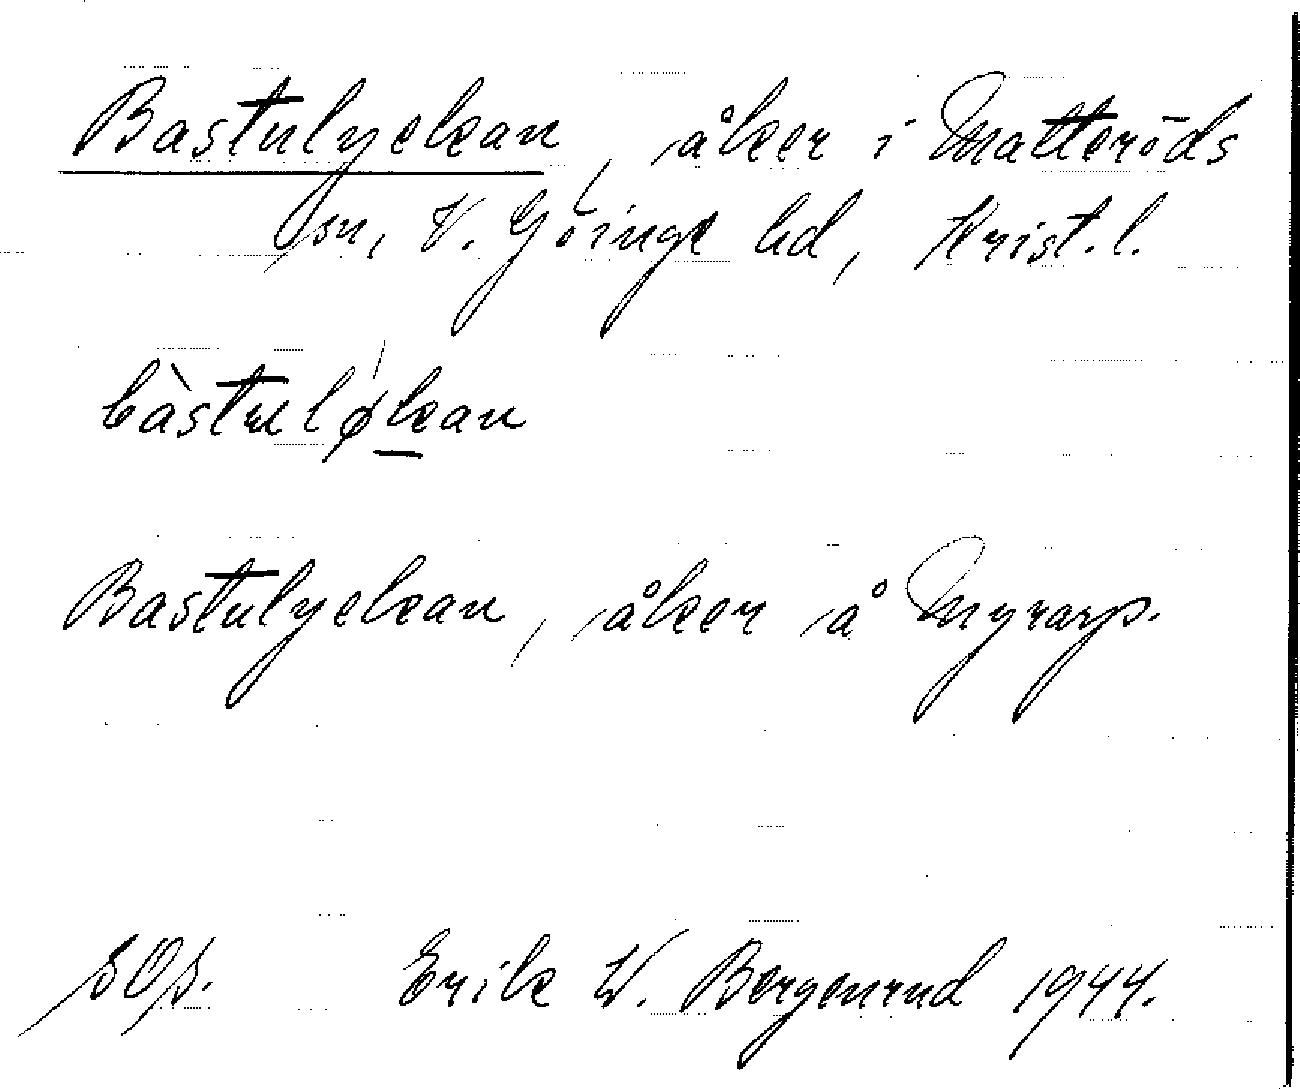 Bastulyckan, åker i Matteröds
sn, V. Göinge hd, Krist. l.
bàstulǿkan
Bastulyckan, åker å Myrarp.
Erik W. Bergenrud 1944.